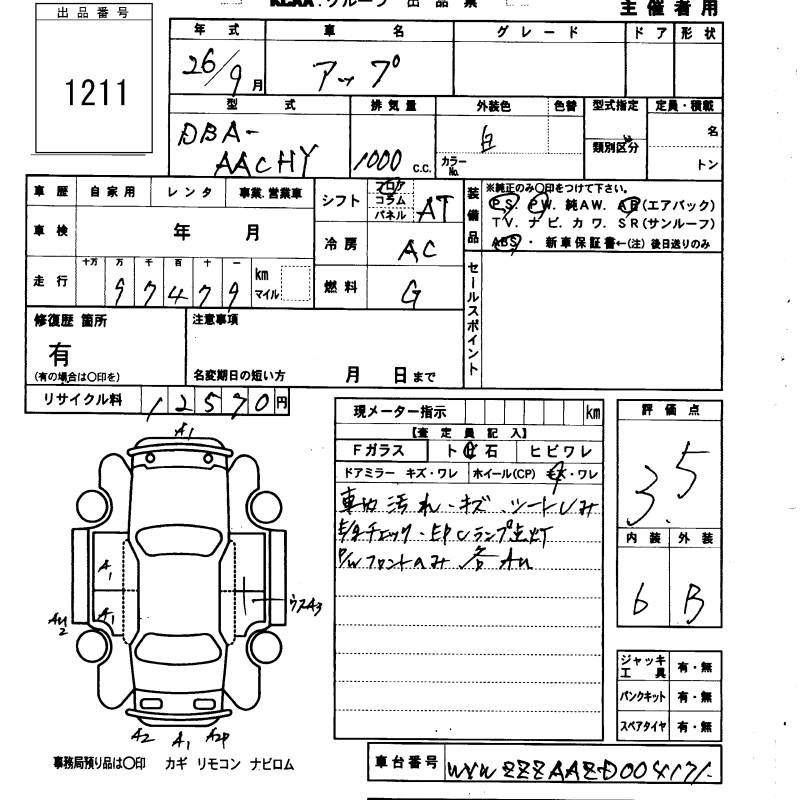 出品番号
1211
KCAA.グループ 出品票
主催者用
年式 車名 グレード ドア 形状
26/9月 アップ
型式 排気量 外装色 色替 型式指定 定員・積載
DBA-
AACHY
1000 c.c.
白
カラーNo.
類別区分
名
トン
車歴 自家用 レンタ 事業.営業車
車検 年 月
走行 十万 万 千 百 十 一
97479
km
マイル
シフト フロア コラム パネル AT
冷房 AC
燃料 G
装備品
※純正のみ〇印をつけて下さい。
PS. PW. 純AW. AB(エアバック)
TV. ナビ. カワ. SR(サンルーフ)
ABS・新車保証書←(注)後日送りのみ
セールスポイント
修復歴 箇所
有
(有の場合は〇印を)
注意事項
名変期日の短い方 月 日まで
リサイクル料 12570円
現メーター指示 km
【査定員記入】
Fガラス ト石 ヒビワレ
ドアミラー キズ・ワレ ホイール(CP) キズ・ワレ
車内汚れ・キズ・シートシミ
E/gチェック・EPCランプ点灯
P/Wフロントのみ 各AU
評価点
3.5
内装 外装
6 B
A1
A1
A1
AU2
ウスA3
A2 A1 A2P
ジャッキ工具 有・無
パンクキット 有・無
スペアタイヤ 有・無
事務局預り品は〇印 カギ リモコン ナビロム
車台番号 WVWZZZAAZD004171